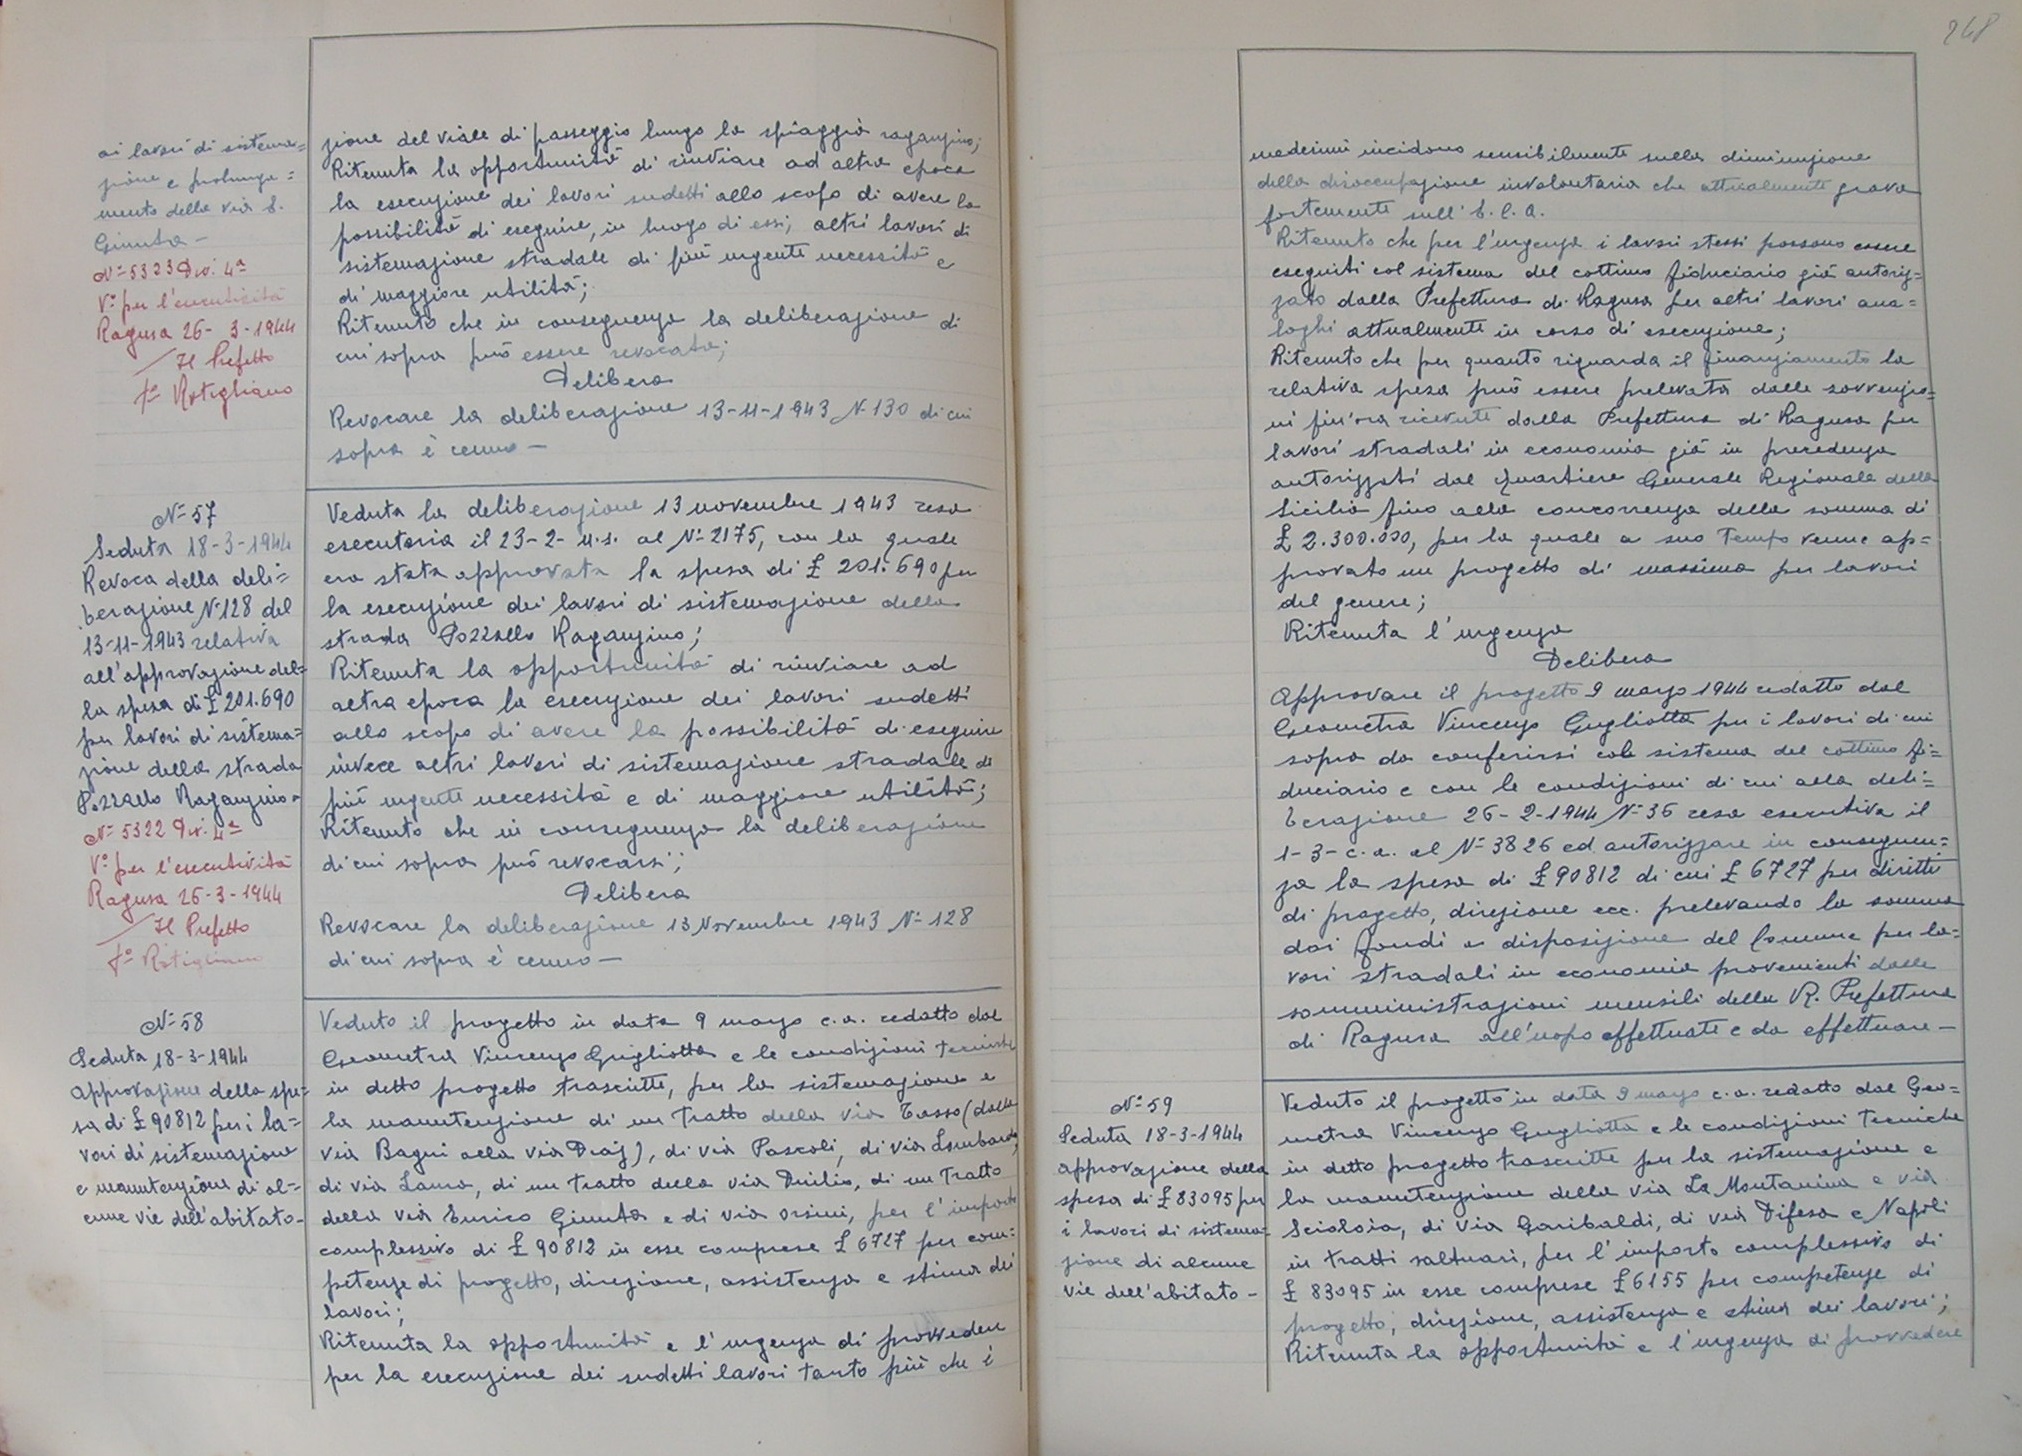 248
ai lavori di sistema=
zione e prolunga=
mento della via E.
Giunta -
N= 5323 Div. 4ª
V° per l'esecutività
Ragusa 26-3-1944
Il Prefetto
f° Rotigliano
zione del viale di passeggio lungo la spiaggia raganzino;
Ritenuta la opportunità di rinviare ad altra epoca
la esecuzione dei lavori sudetti allo scopo di avere la
possibilità di eseguire, in luogo di essi, altri lavori di
sistemazione stradale di più urgente necessità e
di maggiore utilità;
Ritenuto che in conseguenza la deliberazione di
cui sopra può essere revocata;
Delibera
Revocare la deliberazione 13-11-1943 N- 130 di cui
sopra è cenno -
N= 57
Seduta 18-3-1944
Revoca della deli=
berazione N- 128 del
13-11-1943 relativa
all'approvazione del=
la spesa di £ 201.690
per lavori di sistema=
zione della strada
Pozzallo Raganzino -
N= 5322 Div. 4ª
V° per l'esecutività
Ragusa 26-3-1944
Il Prefetto
f° Rotigliano
Veduta la deliberazione 13 novembre 1943 resa
esecutoria il 23-2- u.s. al N- 2175, con la quale
era stata approvata la spesa di £ 201.690 per
la esecuzione dei lavori di sistemazione della
strada Pozzallo Raganzino;
Ritenuta la opportunità di rinviare ad
altra epoca la esecuzione dei lavori sudetti
allo scopo di avere la possibilità di eseguire
invece altri lavori di sistemazione stradale di
più urgente necessità e di maggiore utilità;
Ritenuto che in conseguenza la deliberazione
di cui sopra può revocarsi;
Delibera
Revocare la deliberazione 13 Novembre 1943 N- 128
di cui sopra è cenno -
N= 58
Seduta 18-3-1944
Approvazione della spe=
sa di £ 90812 per i la=
vori di sistemazione
e manutenzione di al=
cune vie dell'abitato -
Veduto il progetto in data 9 marzo c.a. redatto dal
Geometra Vincenzo Gugliotta e le condizioni tecniche
in detto progetto trascritte, per la sistemazione e
la manutenzione di un tratto della via Tasso (dalla
via Bagni alla via Diaz), di via Pascoli, di via Lombardo,
di via Lanza, di un tratto della via Duilio, di un tratto
della via Enrico Giunta e di via Orsini, per l'importo
complessivo di £ 90812 in esse comprese £ 6727 per com=
petenze di progetto, direzione, assistenza e stima dei
lavori;
Ritenuta la opportunità e l'urgenza di provvedere
per la esecuzione dei sudetti lavori tanto più che i
medesimi incidono sensibilmente sulla diminuzione
della disoccupazione involontaria che attualmente grava
fortemente sull'E.C.A.
Ritenuto che per l'urgenza i lavori stessi possono essere
eseguiti col sistema del cottimo fiduciario già autoriz=
zato dalla Prefettura di Ragusa per altri lavori ana=
loghi attualmente in corso di esecuzione;
Ritenuto che per quanto riguarda il finanziamento la
relativa spesa può essere prelevata dalle sovvenzio=
ni fin'ora ricevute dalla Prefettura di Ragusa per
lavori stradali in economia già in precedenza
autorizzati dal Quartiere Generale Regionale della
Sicilia fino alla concorrenza della somma di
£ 2.300.000, per la quale a suo tempo venne ap=
provato un progetto di massima per lavori
del genere;
Ritenuta l'urgenza
Delibera
Approvare il progetto 9 marzo 1944 redatto dal
Geometra Vincenzo Gugliotta per i lavori di cui
sopra da conferirsi col sistema del cottimo fi=
duciario e con le condizioni di cui alla deli=
berazione 26-2-1944 N- 36 resa esecutiva il
1-3-c.a. al N- 3826 ed autorizzare in conseguen=
za la spesa di £ 90812 di cui £ 6727 per diritti
di progetto, direzione ecc. prelevando la somma
dai fondi a disposizione del Comune per la=
vori stradali in economia provenienti dalle
somministrazioni mensili della R. Prefettura
di Ragusa all'uopo effettuate e da effettuare -
N= 59
Seduta 18-3-1944
Approvazione della
spesa di £ 83095 per
i lavori di sistema=
zione di alcune
vie dell'abitato -
Veduto il progetto in data 9 marzo c.a. redatto dal Geo=
metra Vincenzo Gugliotta e le condizioni tecniche
in detto progetto trascritte per la sistemazione e
la manutenzione della via La Montanina e via
Scialoia, di via Garibaldi, di via Difesa e Napoli
in tratti saltuari, per l'importo complessivo di
£ 83095 in esse comprese £ 6155 per competenze di
progetto, direzione, assistenza e stima dei lavori;
Ritenuta la opportunità e l'urgenza di provvedere